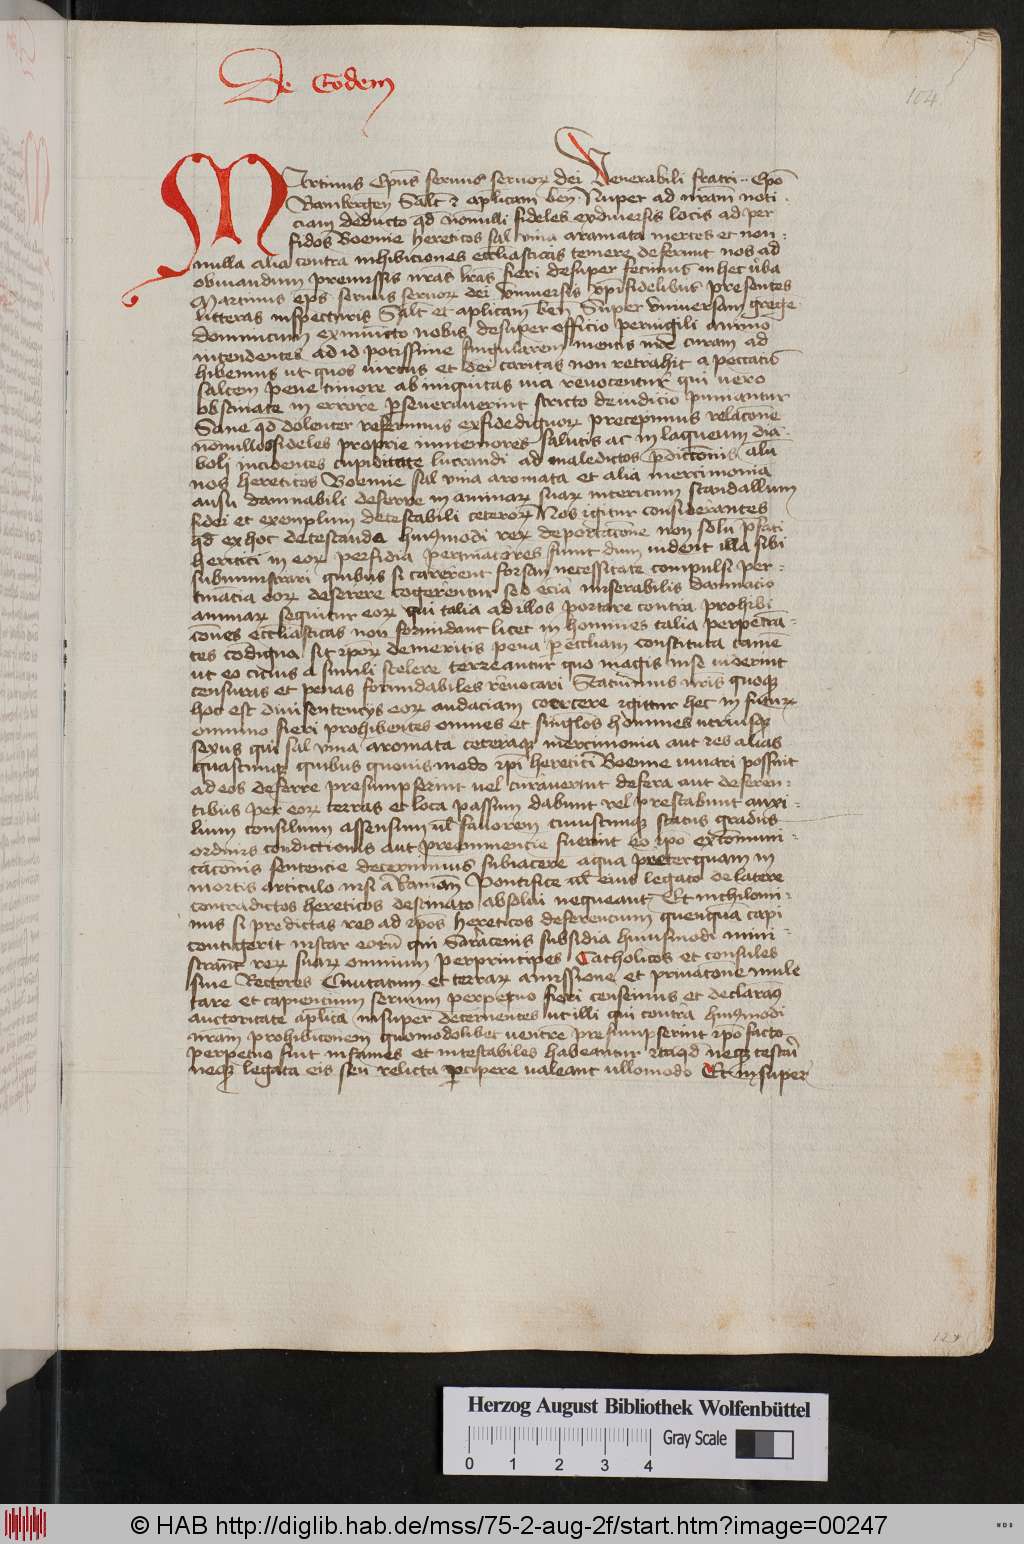 De Eodem
104
Martinus Ep̄us seruus seruoꝝ dei Venerabili fratri ·· Ep̄o
Bambergen̄ Salt̄ ⁊ aplicam ben̄ Nuper ad nr̄am noti
ciam deducto qd̄ nōnulli fideles exdiuersis locis ad per
fidos Boemie hereticos sal vina aramata merces et non-
nulla alia contra inhibiciones eccliasticas temere deferunt nos ad
obuiandum premissis nr̄as lr̄as fieri desuper fecimus in hec ůba
Martinus ep̄s seruus seruoꝝ dei Vniuersis xp̄ifidelibus presentes
litteras inspecturis Salt̄ et aplicam ben̄ Super vniuersam grege
dominicum ex iniūcto nobis desuper officio peruigili animo
intendentes ad id potissime singularem mentis nr̄e curam ad
hibemus ut quos uirtus et dei caritas non retrahit a peccatis
saltem pene timore ab iniquitas uia reuocentur qui uero
obstinate in errore p̄seuerauerint stricto dei iudicio puniantur
Sane qd̄ dolenter referimus exfidedignoꝝ precepimus relac̄one
nōnullos fideles proprie inmemores salutis ac in laqueum dia-
boli incidentes cupiditate lucrandi ad maledictos p̄dict̄onis alū
nos hereticos Boemie sal vina aromata et alia mercimonia
ausu damnabili deferre in animaꝝ suaꝝ interitum scandallum
fidei et exemplum detestabili ceteroꝝ Nos igitur considerantes
qd̄ ex hoc detestanda huiꝯmodi reꝝ deportac̄one non solū p̄fati
heritici in eoꝝ perfidia pertinatiores fiunt dum uident illa sibi
subministrari quibus si carerent forsan necessitate compulsi per-
tinacia eoꝝ deserere cogerentur sed ecia miserabilis damnacio
animaꝝ sequitur eoꝝ qui talia ad illos portare contra prohibi
c̄ones eccliasticas non formidant licet in homines talia perpetra-
tes codigna sit ip̄oꝝ demeritis pena p̄ eccliam constituta tamē
ut eo cicius a simili scelere terreantur quo magis in se uiderint
censuris et penas formidabiles reuocari Statuimus uris quoꝗ
hoc est diui sentencijs eoꝝ audaciam coercere igitur hec in futuꝝ
omnino fieri prohibentes omnes et sin̄glos homines utriusꝗ
sexus qui sal vina aromata ceteraꝗ mercimonia aut res alias
quascunꝗ quibus quouismodo ip̄i heretici Boemie iuuari possint
ad eos deferre presumpserint uel curauerint defera aut deferen-
tibus per eoꝝ terras et loca passum dabunt vel prestabunt auxi-
lium consilium assensum ul̄ fauorem cuiuscunꝗ status gradus
ordinis condictionis aut preeminencie fuerint eo ip̄o excōmuni-
cac̄onis sentencie decernimus subiacere a qua preterquam in
mortis articulo nisi a Roman̄ Pontifice ul̄ eius legato de latere
contradictos hereticos destinato absolui nequeant Et nichilomi-
nus si predictas res ad ip̄os hereticos deferencium quenquā capi
contigerit instar eorū qui Saracenis subsidia huiusmodi mini-
strant reꝝ suaꝝ omnium per principes Catholicos et consules
siue Rectores Ciuitatum et terraꝝ amissione et priuac̄one mulc
tare et capiencium seruum perpetuo fieri censemus et declaraꝯ
auctoritate aplica insuper decernentes ut illi qui contra huiꝯmodi
nr̄am prohibic̄onem quomodolibet uenire presumpserint ip̄o facto
perpetuo sint infames et intestabiles habeantur itaqd̄ neꝗ testari
neꝗ legata eis seū relicta ꝑcipere ualeant ullomodo Et insuper
Herzog August Bibliothek Wolfenbüttel
Gray Scale
0 1 2 3 4
© HAB http://diglib.hab.de/mss/75-2-aug-2f/start.htm?image=00247